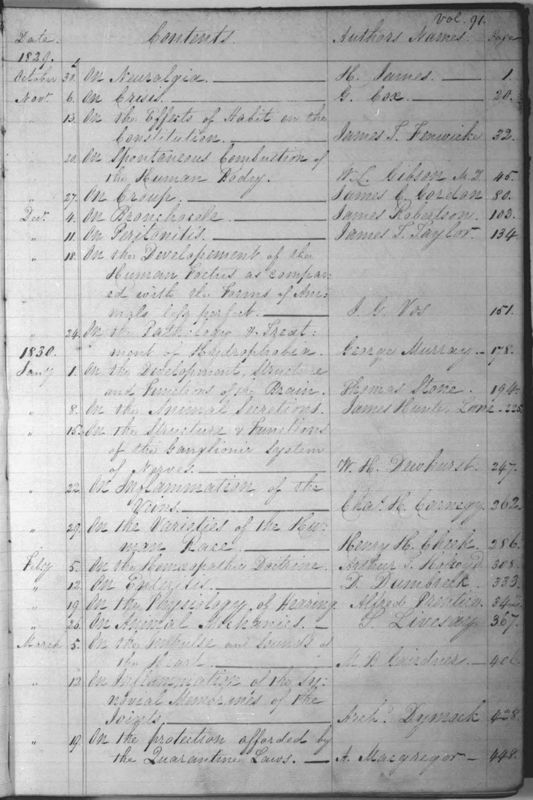 Vol. 91.
Date. Contents. Authors Names. Page
1829.
October 30. On Neuralgia. H. James. 1.
Novr. 6. On Crisis. G. Cox. 20.
" 13. On the Effects of Habit on the
Constitution. James T. Fenwick 32.
" 20. On Spontaneous Combustion of
the Human Body. W. L. Gibson M.D. 45.
" 27. On Croup. James C. Gordon 80.
Decr. 4. On Bronchocele. James Robertson. 103.
" 11. On Peritonitis. James T. Taylor 134
" 18. On the Developement of the
Human Foetus as compar-
ed with the Forms of Ani-
mals less perfect. J. G. Vos 151.
" 24. On the Pathology & Treat-
1830. ment of Hydrophobia. George Murray 178.
Jany 1. On the Development, Structure
and Functions of the Brain. Thomas Stone. 194.
" 8. On the Animal Secretions. James Hunter Lane 225.
" 15. On the Structure & Functions
of the Ganglionic System
of Nerves. W. H. Dewhurst. 247.
" 22. On Inflammation of the
Veins. Chas. H. Carnegy. 262.
" 29. On the Varieties of the Hu-
man Race. Henry H. Cheek. 286.
Feby 5. On the Homeopathic Doctrine. Arthur S. 308.
" 12. On Enteritis. D. Dumbreck. 333.
" 19. On the Physiology of Hearing Alfred
" 26. On Animal Mechanics. Livesay 367.
March 5. On the Impulse and Sounds of
the Heart. M. 406.
" 12. On Inflammation of the Sy-
novial Membranes of the
Joints. Archd. Dymock 428.
" 19. On the protection afforded by
the Quarantine Laws. A. Macgregor 448.